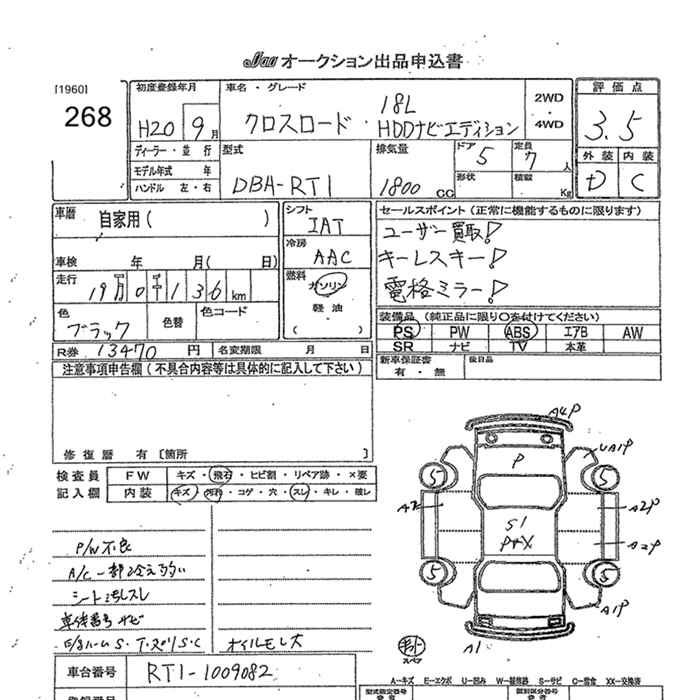 JAA オークション出品申込書
[1960]
268
初度登録年月
H20 9月
車名・グレード
クロスロード・ 18L
HDDナビエディション
2WD
・
4WD
評価点
3.5
外装 内装
D C
ディーラー・並行
モデル年式 年
ハンドル 左・右
型式
DBA-RT1
排気量
1800 CC
ドア 5
定員 7 人
形状
積載 Kg
車歴 自家用( )
車検 年 月( 日)
走行 19万0千136km
色 ブラック
色替
色コード
シフト IAT
冷房 AAC
燃料 ガソリン
軽油
( )
セールスポイント(正常に機能するものに限ります)
ユーザー買取!
キーレスキー!
電格ミラー!
装備品(純正品に限り○を付けてください)
PS PW ABS エアB AW
SR ナビ TV 本革
新車保証書
有・無
後日品
R券 13470 円 名変期限 月 日
注意事項申告欄(不具合内容等は具体的に記入して下さい)
修復歴 有[箇所 ]
検査員
記入欄
FW キズ・飛石・ヒビ割・リペア跡・×要
内装 キズ・汚れ・コゲ・穴・スレ・キレ・破レ
P/W不良
A/C一部冷え弱い
シート汚レスレ
車体番号サビ
オイルモレ大
車台番号 RT1-1009082
A4P
UA1P
P
A2
A2P
S1
P+X
A2P
A1P
A1
5
5
5
5
スペア
A-キズ E-エクボ U-凹み W-補修跡 S-サビ C-腐食 XX-交換済
型式指定番号
類別区分番号
登録番号